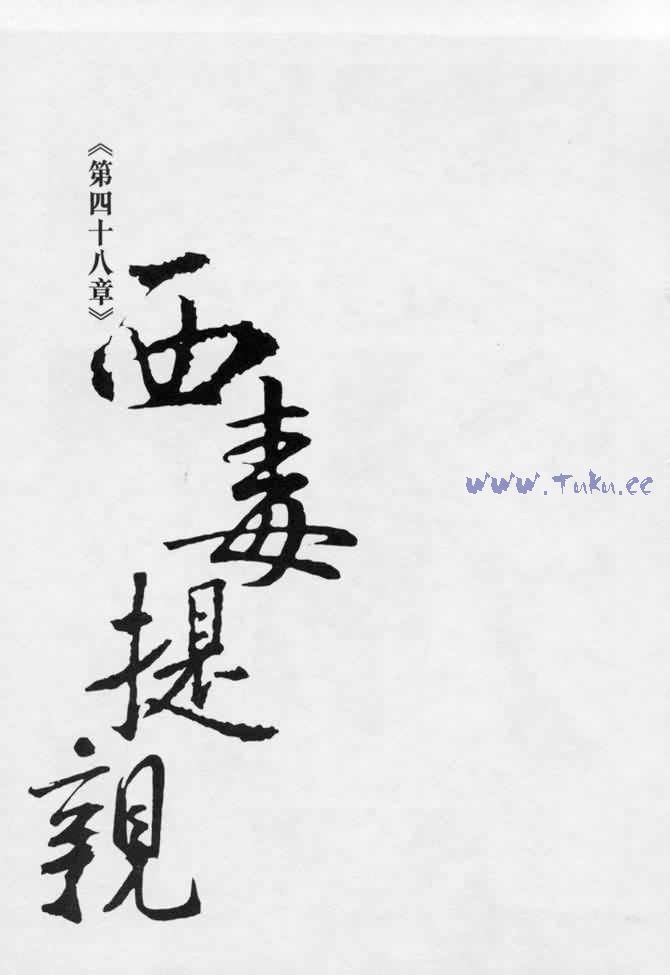 《第四十八章》
西毒提親
www.Tuku.cc